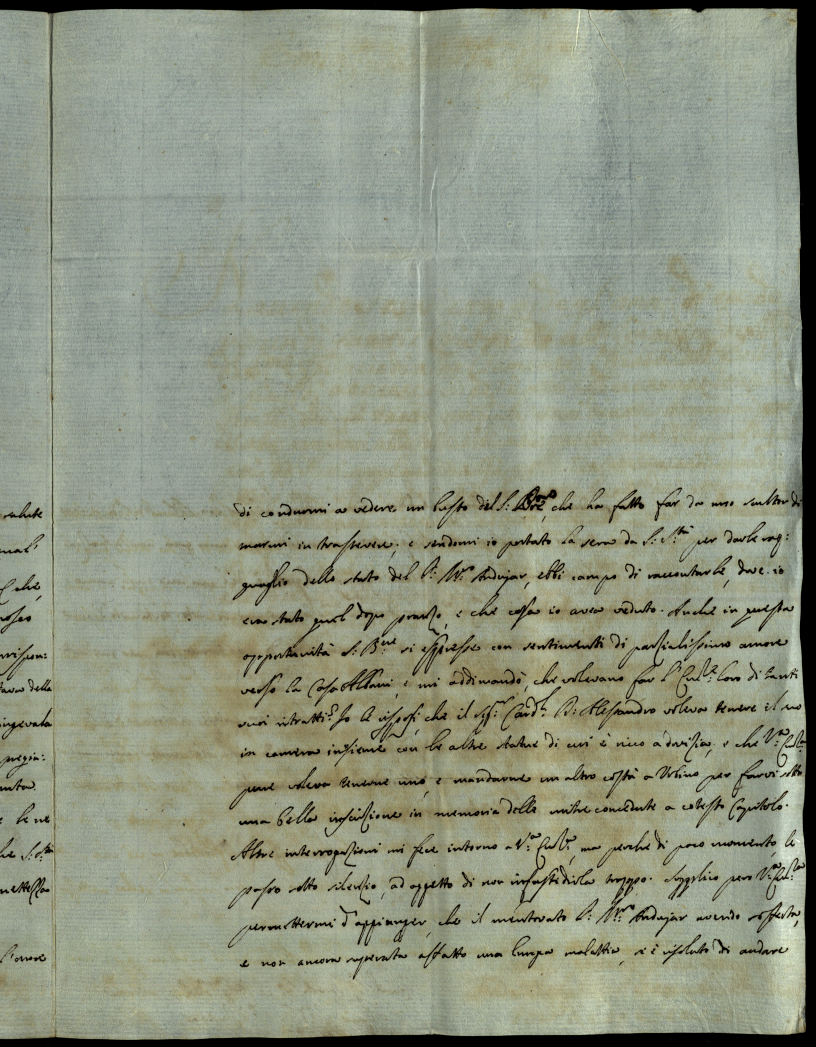 salute
di condurmi a vedere un busto del S: Pre, che ha fatto far da uno scultor di
marmi in trastevere; e sendomi io portato la sera da S: Stà per darle rag:
guaglio dello stato del P: Mro Andujar, ebbi campo di raccontarle, dove io
ero stato quel dopo pranzo, e che cosa io avea veduto. Anche in questa
opportunità S: Bne si espresse con sentimenti di parzialissimo amore
verso la Casa Albani, e mi addimandò, che volevano far l'Emze loro di tanti
suoi ritratti? Io le risposi, che il Sigr Cardl D: Alessandro voleva tenere il suo
in camera insieme con le altre statue di cui è ricco a dovizia, e che Vra Emza
pure voleva tenerne uno, e mandarne un altro costà a Urbino per farvi sotto
una bella inscrizione in memoria delle mitre concedute a cotesto Capitolo.
Altre interrogazioni mi fece intorno a Vra Emza, ma perché di poco momento le
passo sotto silenzio, ad oggetto di non infastidirla troppo. Supplico però Vra Emza
permettermi d'aggiunger, che il mentovato P: Mro Andujar avendo sofferta,
e non ancora superata affatto una lunga malattia, si è risoluto di andare
che
tava della
ungevala
pregia:
le ne
che S: Stà
nettezza
l'onore